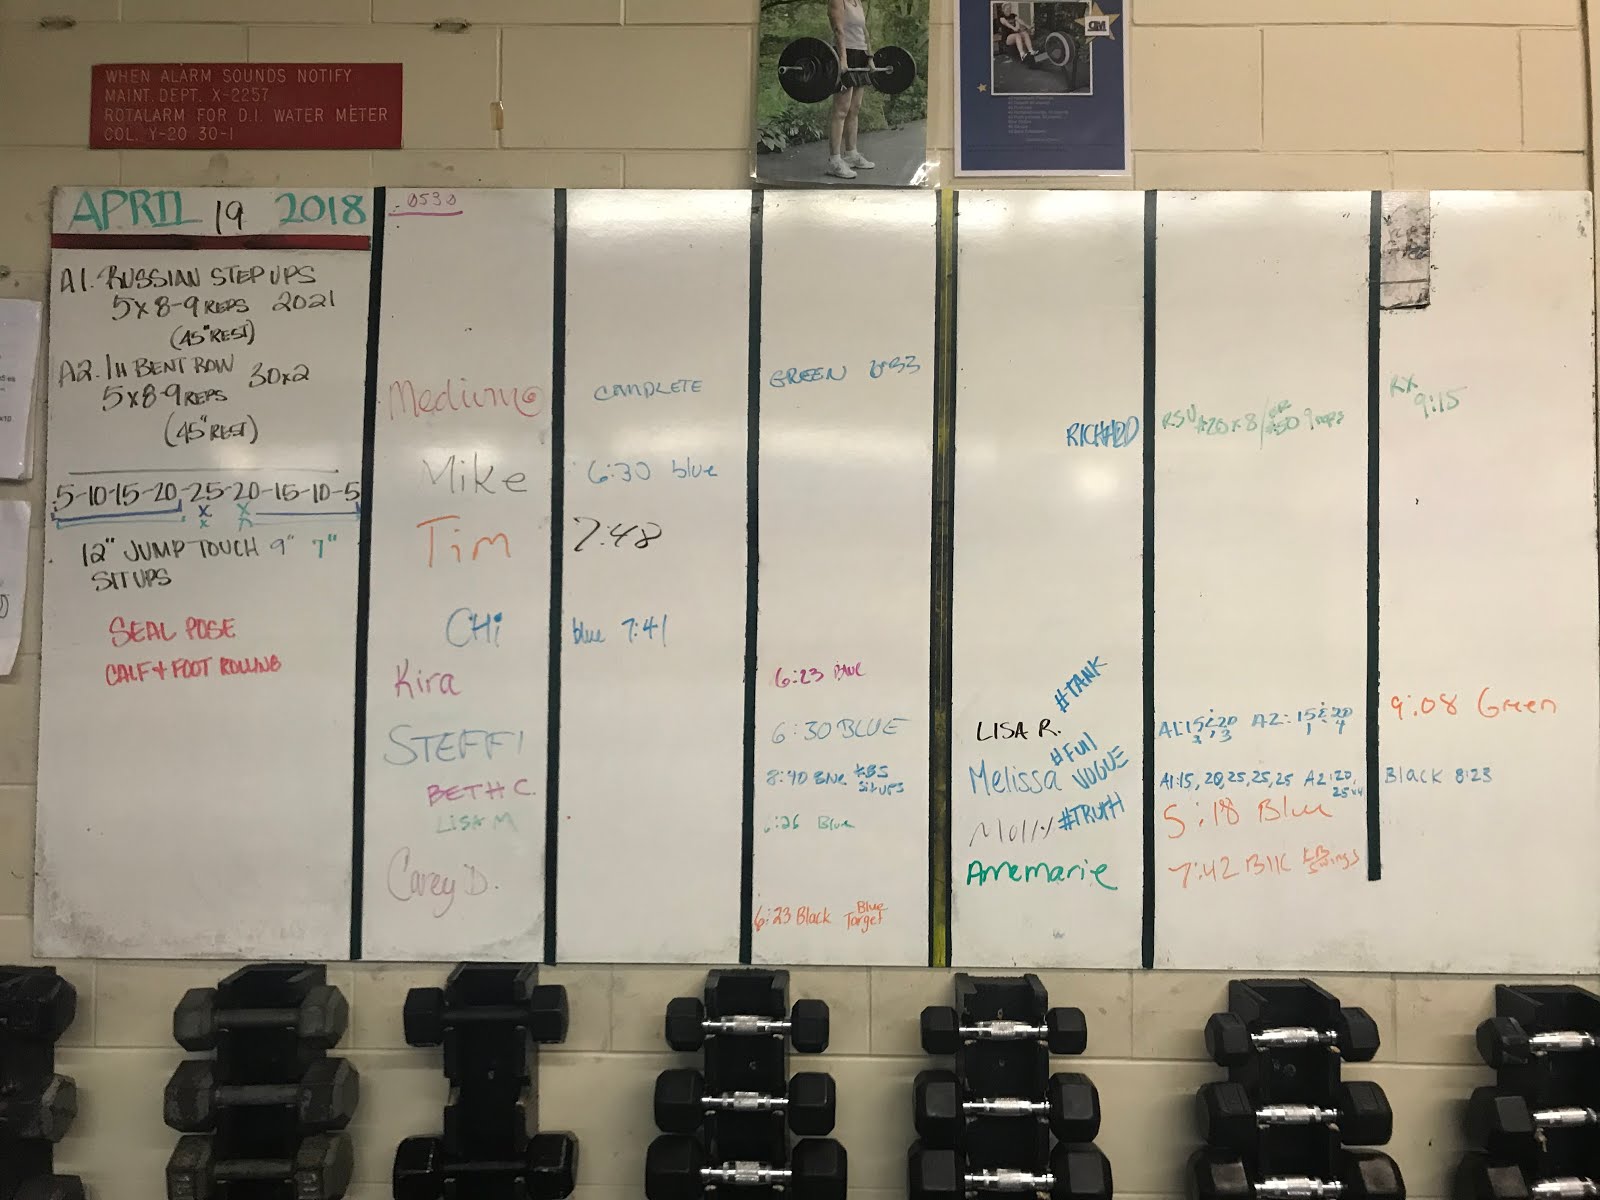 WHEN ALARM SOUNDS NOTIFY
MAINT. DEPT. X-2257
ROTALARM FOR D.I. WATER METER
COL. Y-20 30-1
APRIL 19 2018
A1. RUSSIAN STEP UPS
5x8-9 REPS 2021
(45" REST)
A2. 1H BENT ROW 30x2
5x8-9 REPS
(45" REST)
5-10-15-20-25-20-15-10-5
x x
x
12" JUMP TOUCH 9" 7"
SIT UPS
SEAL POSE
CALF + FOOT ROLLING
0530
Medium
COMPLETE
GREEN
Mike
6:30 blue
Tim
7:48
CHi
blue 7:41
Kira
6:23 BLUE
STEFFI
6:30 BLUE
BETH C.
8:40 Blue KBS
SIT UPS
LISA M
6:26 Blue
Carey D.
6:23 Black Blue
Target
RICHARD
RSU #20 x 8/ OR
#50 9 reps
RX
9:15
#TANK
LISA R.
A1:15 & 20 A2: 15 & 20
9:08 Green
#FULL
VOGUE
Melissa
A1:15, 20, 25, 25, 25 A2:20,
25x4
Black 8:23
Molly
#TRUTH
5:18 Blue
Annemarie
7:42 Blk KB
Swings